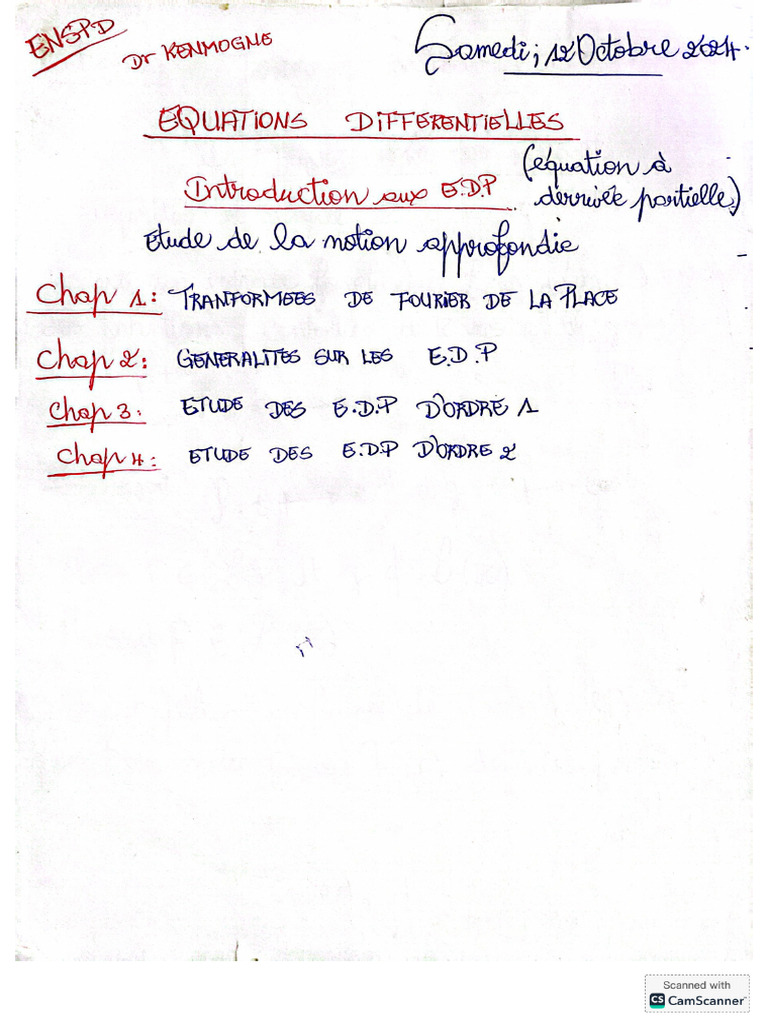 ENSPD
Dr KENMOGNE
Samedi; 12 Octobre 2024.
EQUATIONS DIFFERENTIELLES
Introduction aux E.D.P (équation à
derrivée partielle)
Etude de la notion approfondie
Chap 1: TRANFORMEES DE FOURIER DE LA PLACE
Chap 2: GENERALITES SUR LES E.D.P
Chap 3: ETUDE DES E.D.P D'ORDRE 1
Chap 4: ETUDE DES E.D.P D'ORDRE 2
Scanned with
CS CamScanner